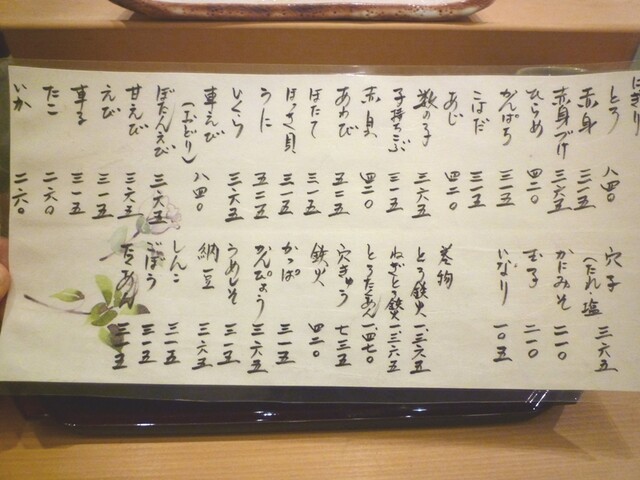 にぎり
とろ 八四〇
赤身 三一五
赤身づけ 三六五
ひらめ 四二〇
かんぱち 三一五
こはだ 三一五
あじ 四二〇
数の子 三六五
子持ちこぶ 三一五
赤貝 四二〇
あわび 五二五
ほたて 三一五
ほっき貝 三一五
うに 五二五
いくら 三六五
車えび
(おどり) 八四〇
ぼたんえび 三六五
甘えび 三六五
えび 三一五
三一五
たこ 二六〇
いか 二六〇
穴子
(たれ・塩) 三六五
かにみそ 二一〇
玉子 二一〇
いなり 一〇五
巻物
とろ鉄火 一、三六五
ねぎとろ鉄火 一、三六五
とろたくあん 一、四七〇
穴きゅう 七三五
鉄火 四二〇
かっぱ 三一五
かんぴょう 三六五
うめしそ 三一五
納豆 三六五
しんこ 三一五
ごぼう 三一五
たくあん 三一五